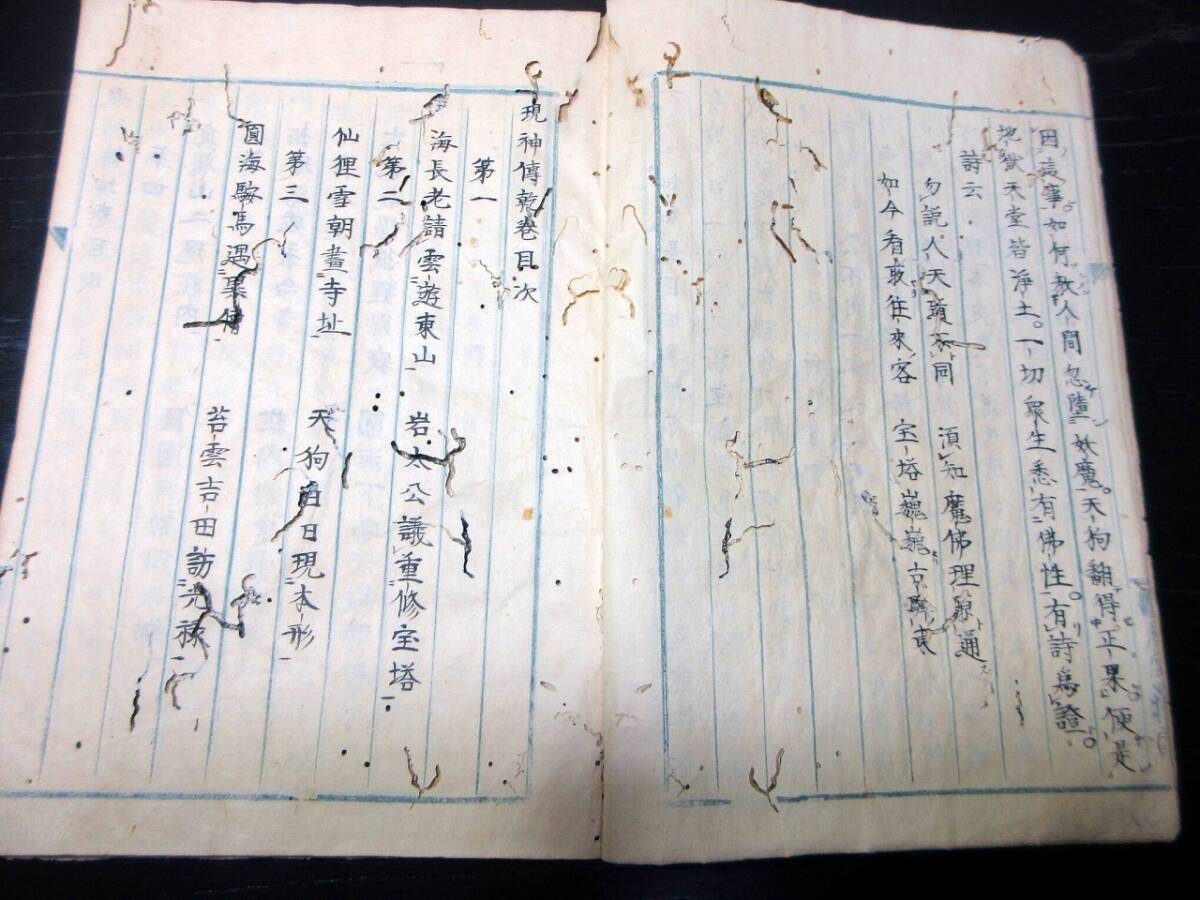 因這事。如何教人間忽墮妖魔。天狗翻得正果。便是
地獄天堂皆淨土。一切衆生悉有佛性。有詩為證。
詩云
勿説人天類不同 須知魔佛理原通
如今看取往來客 宝塔巍巍京
現神傳乾卷目次
第一
海長老請雲遊東山 岩太公議重修宝塔
第二
仙狸雪朝畫寺址 天狗白日現本形
第三
圓海駿馬遇 苔雲吉田訪光祿